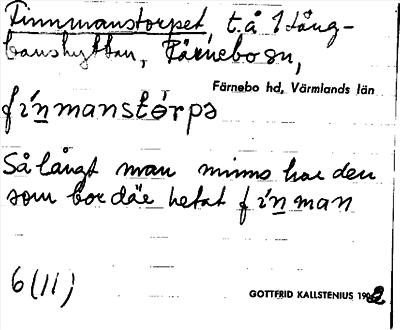 Finnmanstorpet, t.å 1 Lång-
banshyttan, Färnebo sn,
Färnebo hd, Värmlands län
fínmanstòrpə
Så långt man minns har den
som bor där hetat fínman
6(11)
GOTTFRID KALLSTENIUS 1902